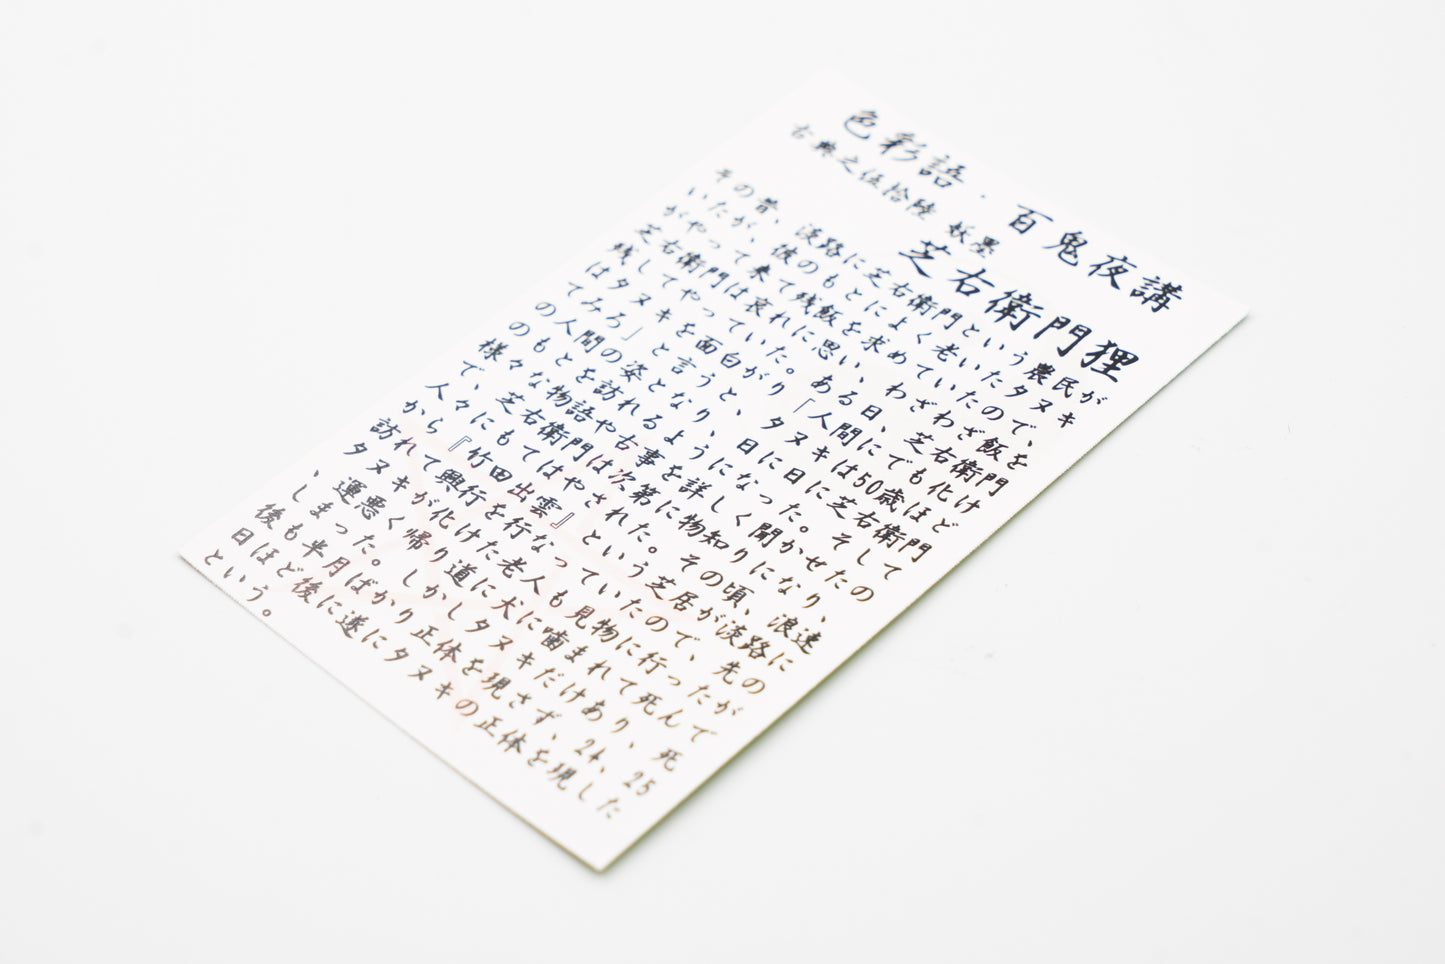 色彩語・百鬼夜講
古典之伍拾陸 妖墨
芝右衛門狸
その昔、淡路に芝右衛門という農民が
いたが、彼のもとによく老いたタヌキ
がやって来て残飯を求めていたので、
芝右衛門は哀れに思い、わざわざ飯を
残してやっていた。ある日、芝右衛門
はタヌキを面白がり「人間にでも化け
てみろ」と言うと、タヌキは50歳ほど
の人間の姿となり、日に日に芝右衛門
のもとを訪れるようになった。そして
様々な物語や古事を詳しく聞かせたの
で、芝右衛門は次第に物知りになり、
人々にもてはやされた。その頃、浪速
から『竹田出雲』という芝居が淡路に
訪れて興行を行なっていたので、先の
タヌキが化けた老人も見物に行ったが
、運悪く帰り道に犬に噛まれて死んで
しまった。しかしタヌキだけあり、死
後も半月ばかり正体を現さず、24、25
日ほど後に遂にタヌキの正体を現した
という。